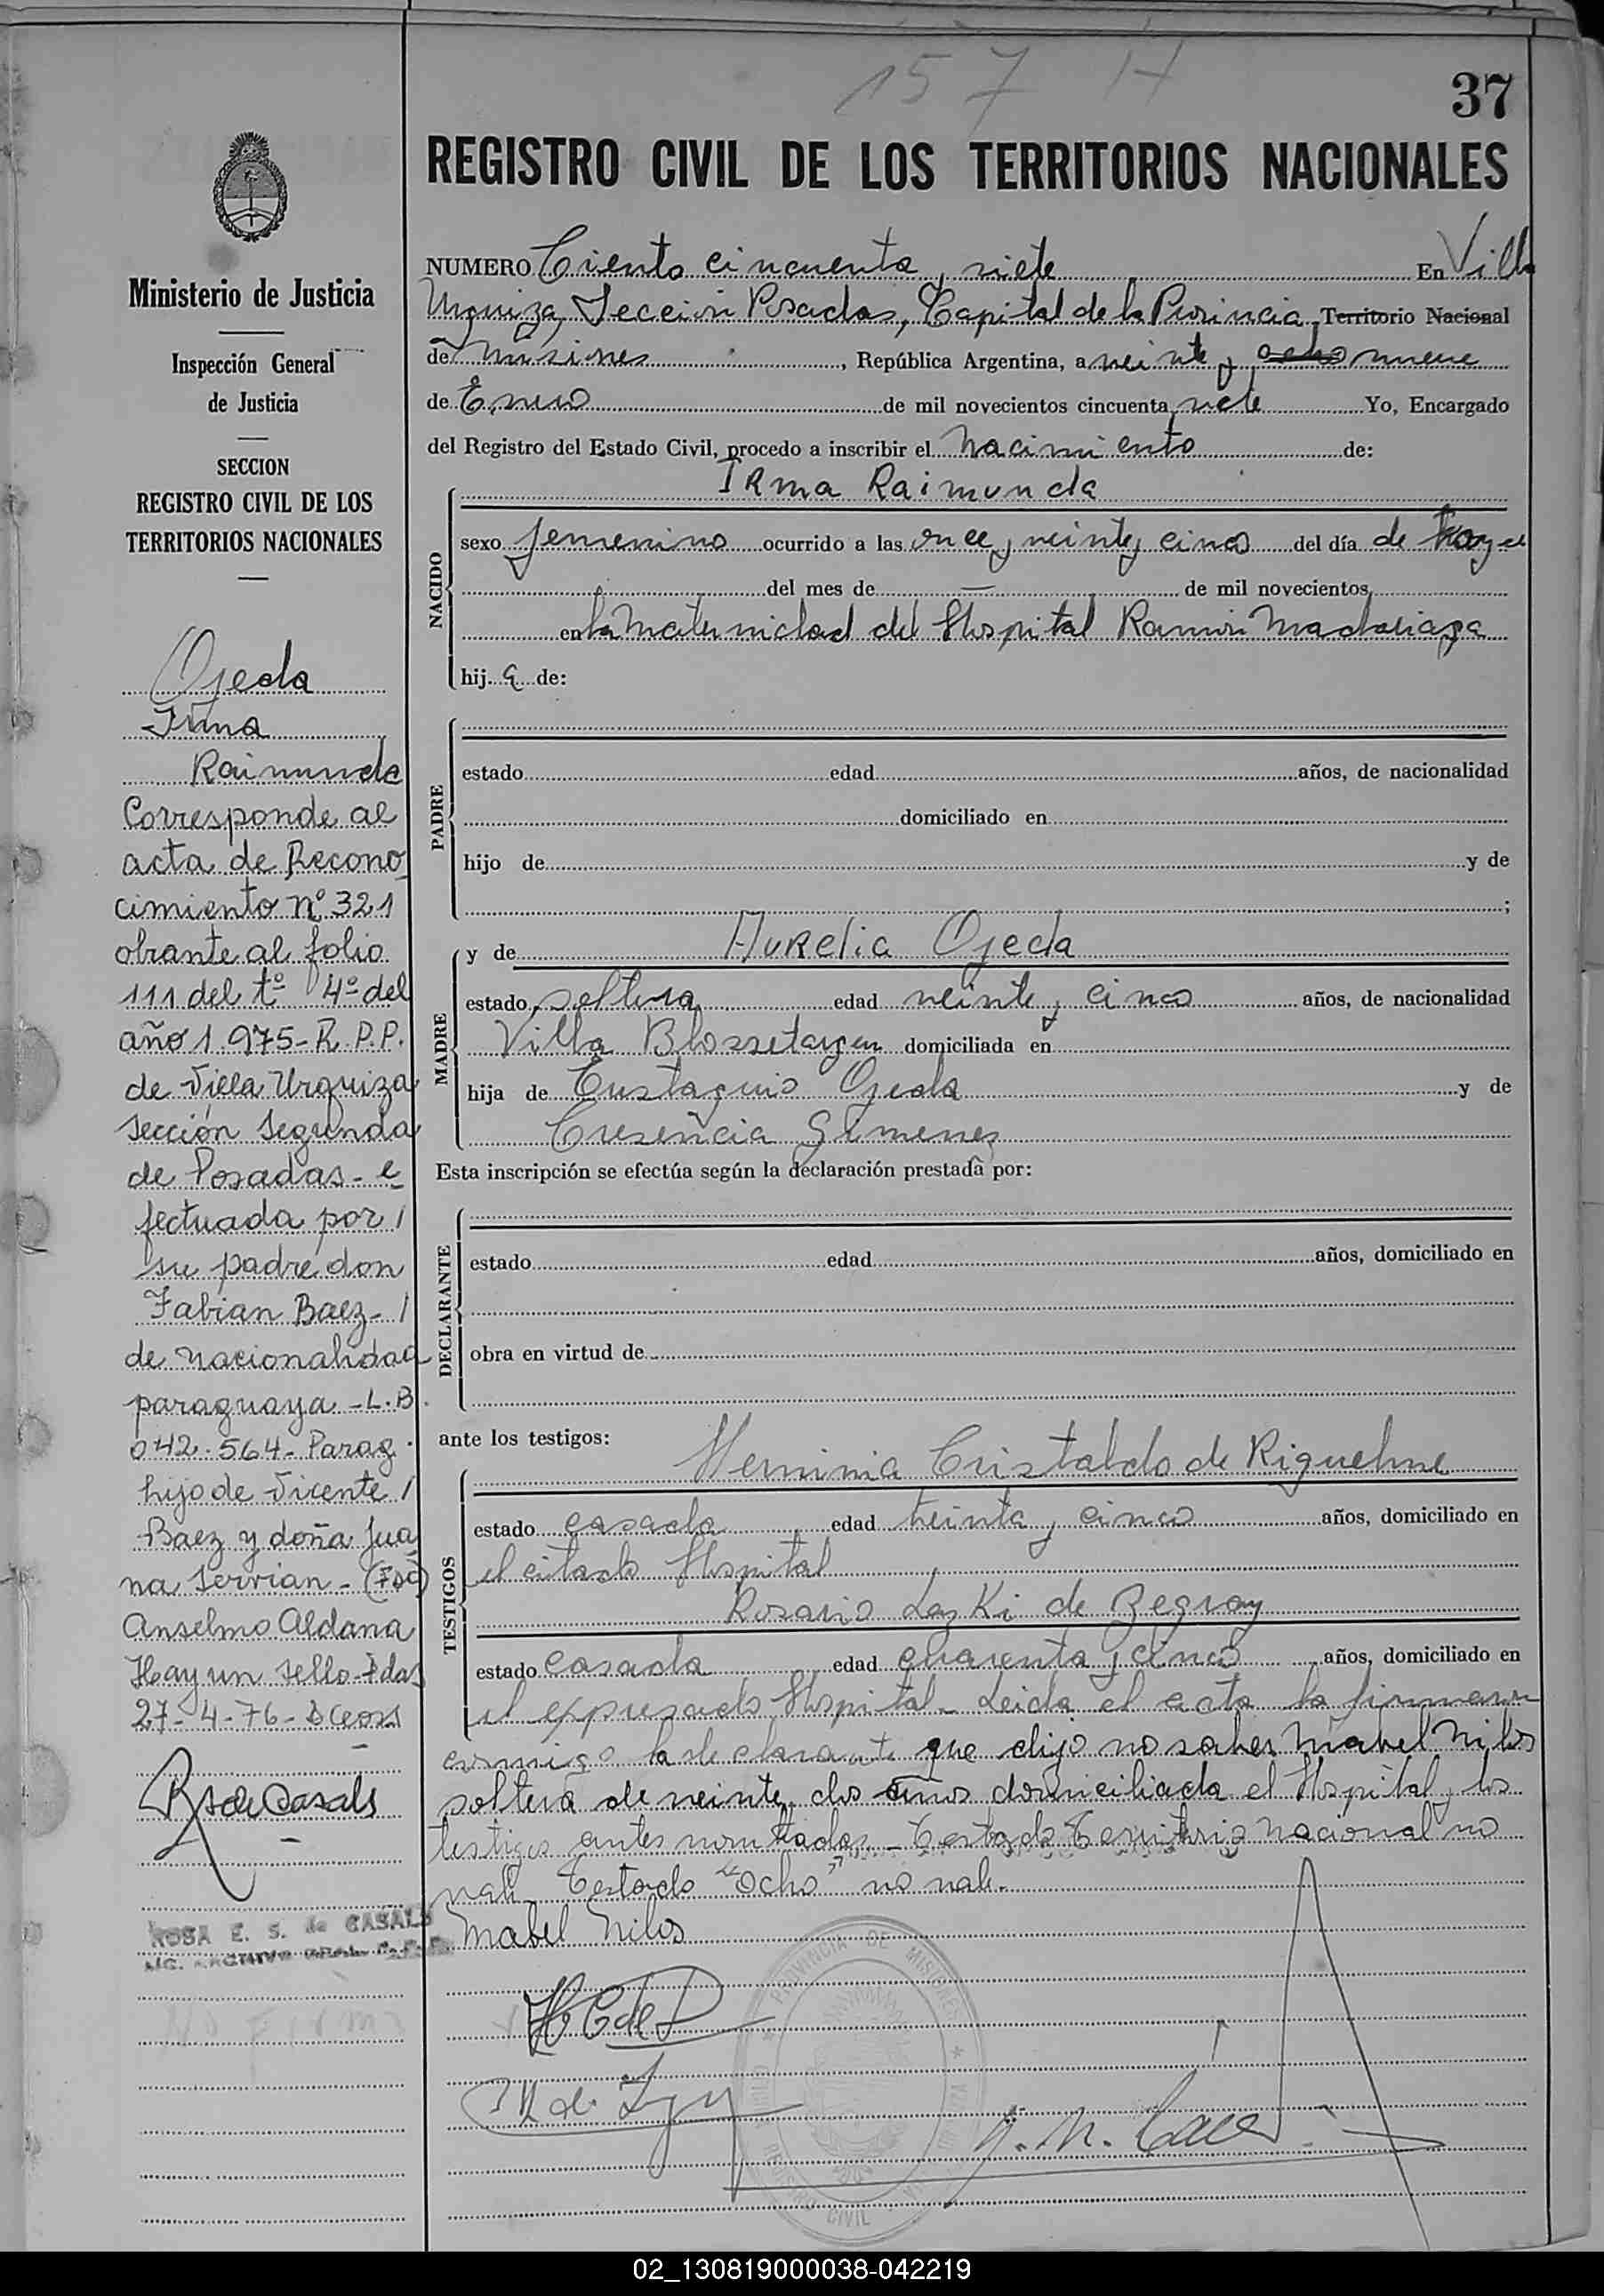 157 H
37
REGISTRO CIVIL DE LOS TERRITORIOS NACIONALES
Ministerio de Justicia
Inspección General
de Justicia
SECCION
REGISTRO CIVIL DE LOS
TERRITORIOS NACIONALES
Ojeda
Irma
Raimunda
Corresponde al
acta de Recono
cimiento nº 321
obrante al folio
111 del tº 4º del
año 1.975-R.P.P.
de Villa Urquiza
sección segunda
de Posadas - e
fectuada por /
su padre don
Fabian Baez - /
de nacionalidad
paraguaya - L.B.
042.564- Parag.
hijo de Vicente /
Baez y doña Jua
na Servian - (Fdo)
Anselmo Aldana
Hay un sello - Pdas
27-4-76-
R S de Casals
ROSA E. S. de CASALS
NUMERO Ciento cincuenta y siete En Villa
Urquiza, Sección Posadas, Capital de la Provincia, Territorio Nacional
de Misiones, República Argentina, a veinte y ocho nueve
de Enero de mil novecientos cincuenta y siete Yo, Encargado
del Registro del Estado Civil, procedo a inscribir el Nacimiento de:
NACIDO
Irma Raimunda
sexo femenino ocurrido a las once y veinte y cinco del día de hoy
del mes de — de mil novecientos
en la Maternidad del Hospital Ramón Madariaga
hija de:
PADRE
estado edad años, de nacionalidad
domiciliado en
hijo de y de
;
MADRE
y de Aurelia Ojeda
estado soltera edad veinte y cinco años, de nacionalidad
Villa Blossetargen domiciliada en
hija de Eustaquio Ojeda y de
Cresencia Gimenes
Esta inscripción se efectúa según la declaración prestada por:
DECLARANTE
estado edad años, domiciliado en
obra en virtud de
ante los testigos:
TESTIGOS
Herminia Cristaldo de Riquelme
estado casada edad treinta y cinco años, domiciliado en
el citado Hospital
Rosario Laski de Zegray
estado casada edad cuarenta y cinco años, domiciliado en
el expresado Hospital - Leida el acta la firmaron
conmigo la declarante que dijo no saber Mabel Nilos
soltera de veinte y dos años domiciliada el Hospital y los
testigos antes nombrados - Testado Territorio Nacional no
vale - Testado "Ocho" no vale.
Mabel Nilos
H C de R
PROVINCIA DE MISIONES
REGISTRO CIVIL
02_130819000038-042219